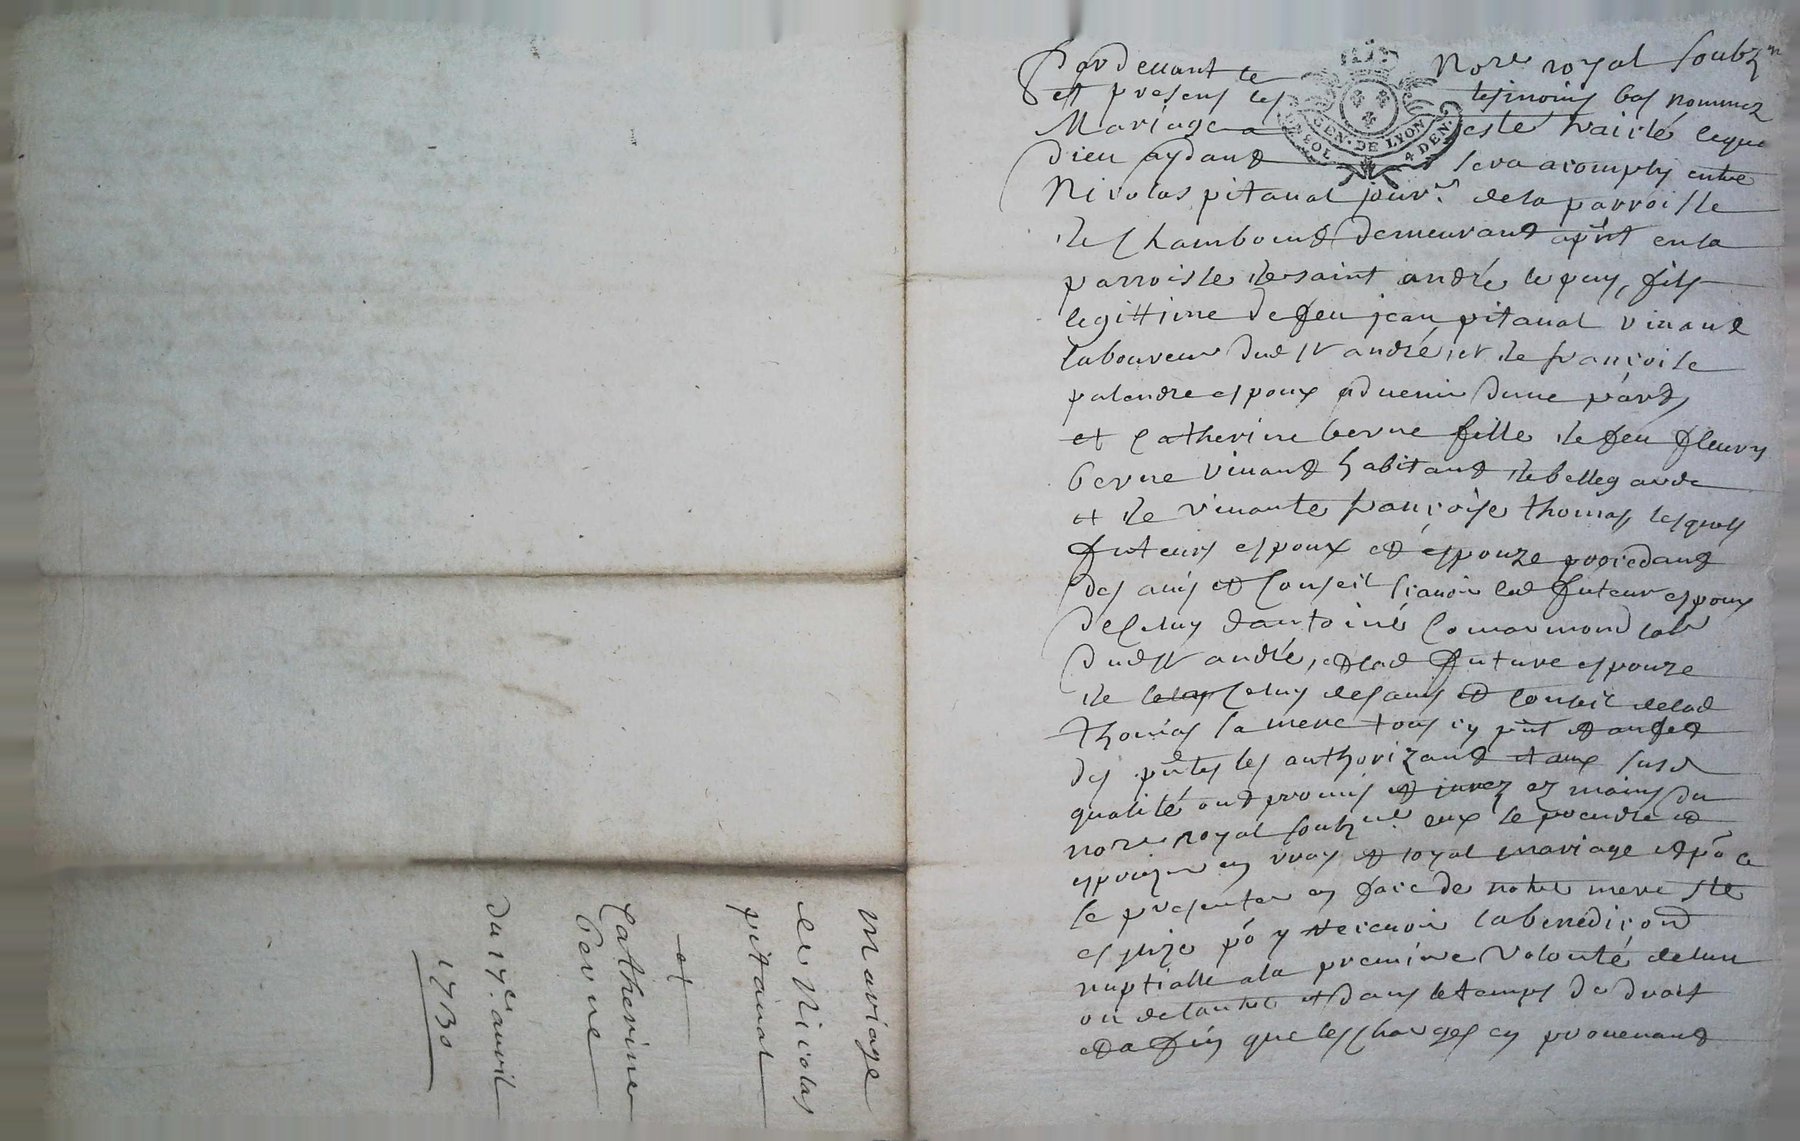 Pardeuant le nore royal soubzne
et presens les tesmoins bas nommez
Mariage a este traicté leque
dieu aydant sera acomply entre
Nicolas pitaual jourr. de la parroisse
de Chambouet demeurant apñt en la
parroisse de saint andré le puy, fils
legittime de feu jean pitaual viuant
laboureur dud st andré, et de françoise
palandre espoux aduenir dune part,
et Catherine berne fille de feu fleury
berne viuant habitant de bellegarde
et de viuante françoise thomas, lesquels
futeurs espoux et espouze procedant
des auis et Conseil sçauoir led futeur espoux
de celuy dantoine labr
dud st andré, et lad future espouze
de celuy de auis et conseil de lad
thomas sa mere tous icy pñt et
des pñtes les authorizant et aux susd
qualité ont promis et jurez ez mains du
nore royal soubzne eux se prendre et
espouzer en vray et loyal mariage et po ce
se presenter en face de notre mere ste
esglize po y receuoir la benediçon
nuptialle a la premiere volonté de lun
ou de lautre et dans le temps de droit
et a fin que les charges en prouenant
GEN. DE LYON
4 DEN.
mariage
de Nicolas
pitaual
et
Catherine
berne
du 17e. auril
1730